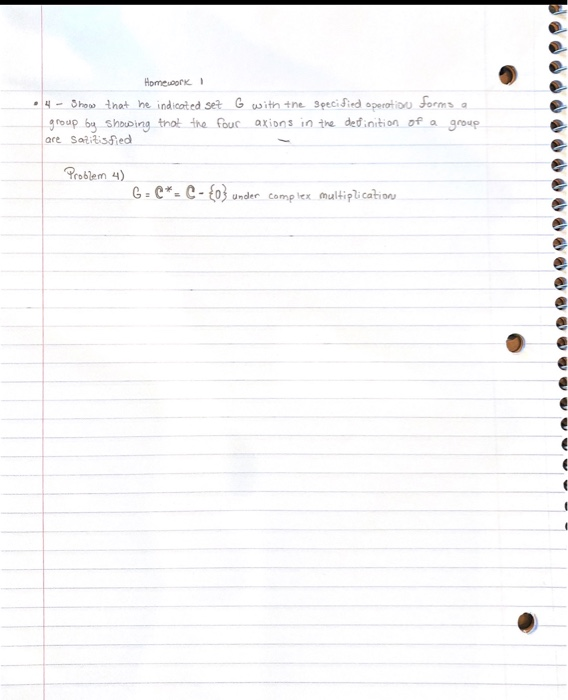 Homework 1
• 4 - Show that he indicated set G with the specified operation forms a
group by showing that the four axions in the definition of a group
are satitisfied
Problem 4)
G = ℂ* = ℂ - {0} under complex multiplication